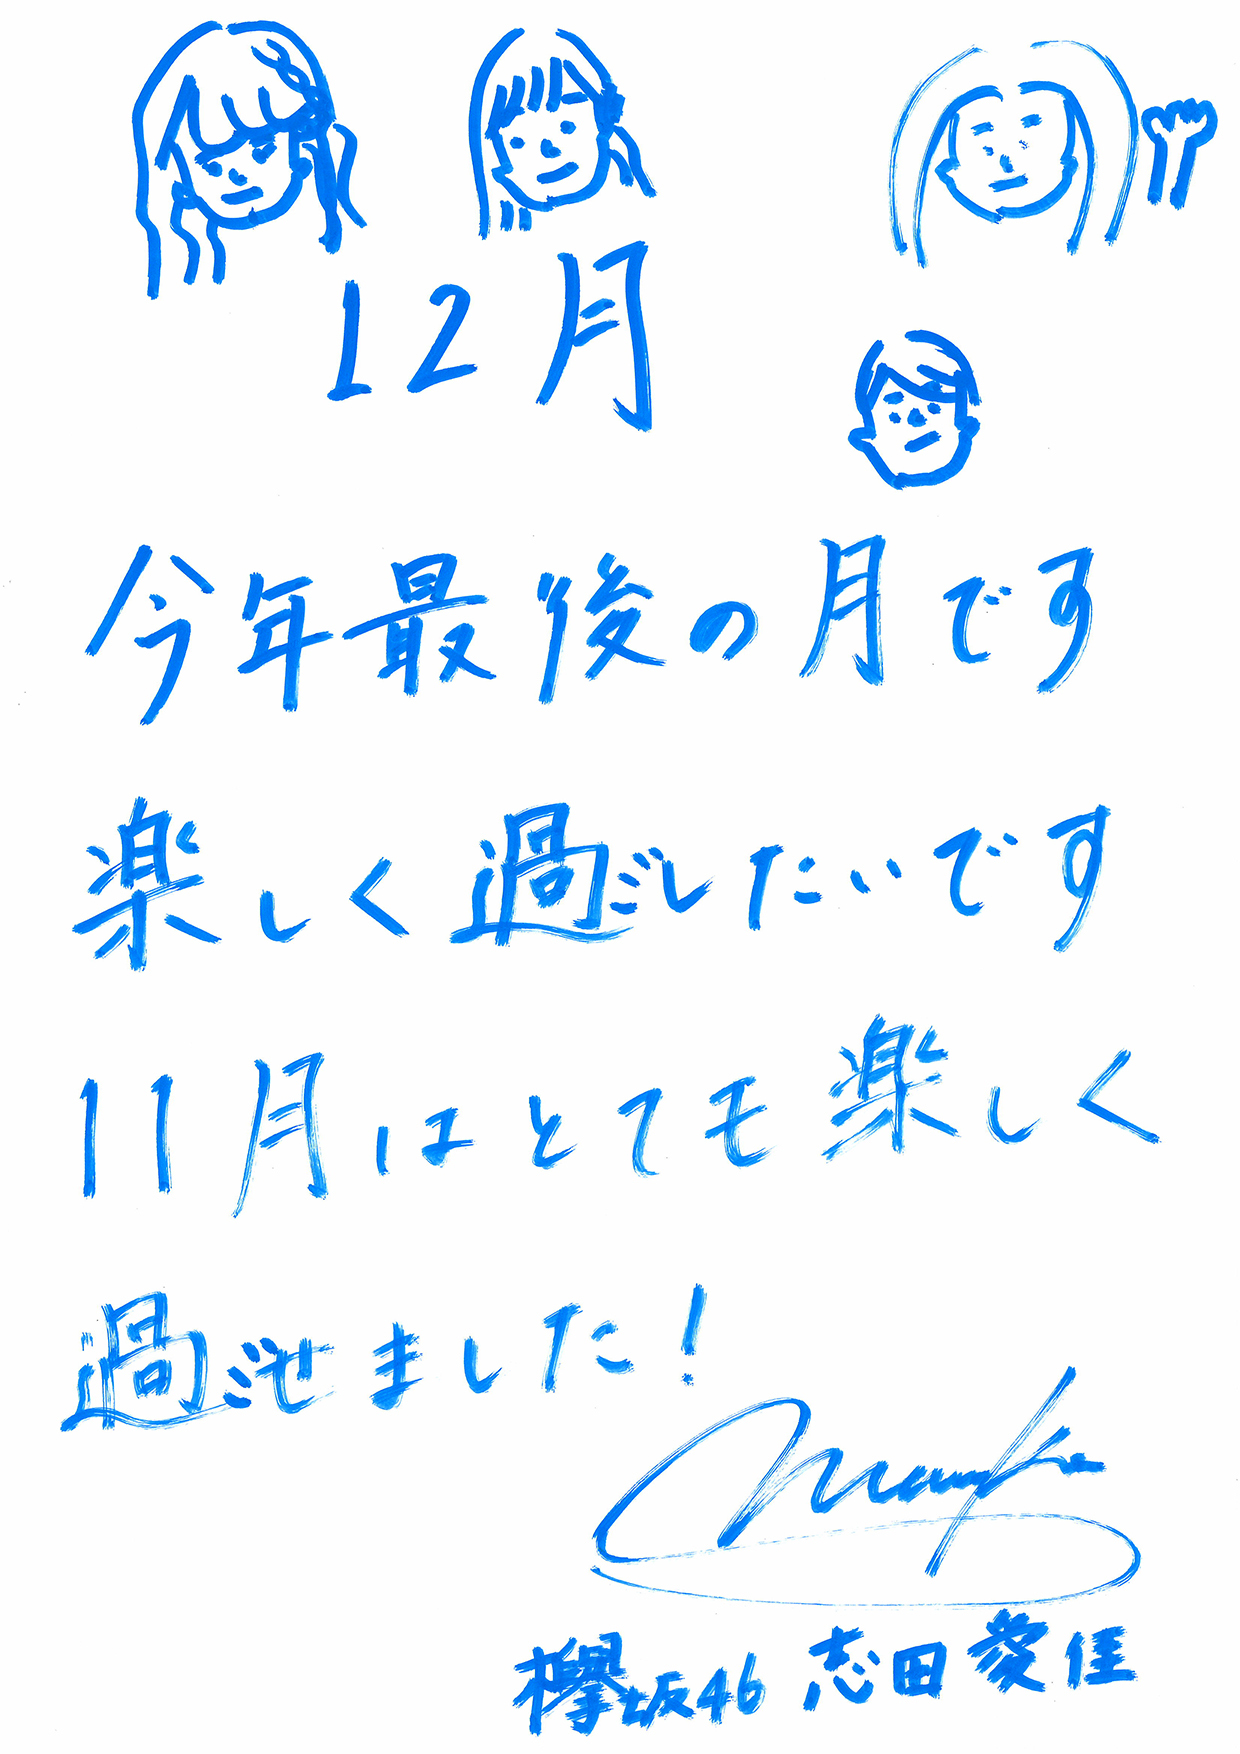 12月
今年最後の月です
楽しく過ごしたいです
11月はとても楽しく
過ごせました!
Manaka
欅坂46 志田愛佳